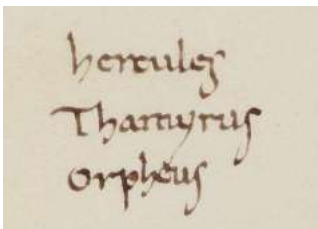 hercules
Thamyrus
Orpheus